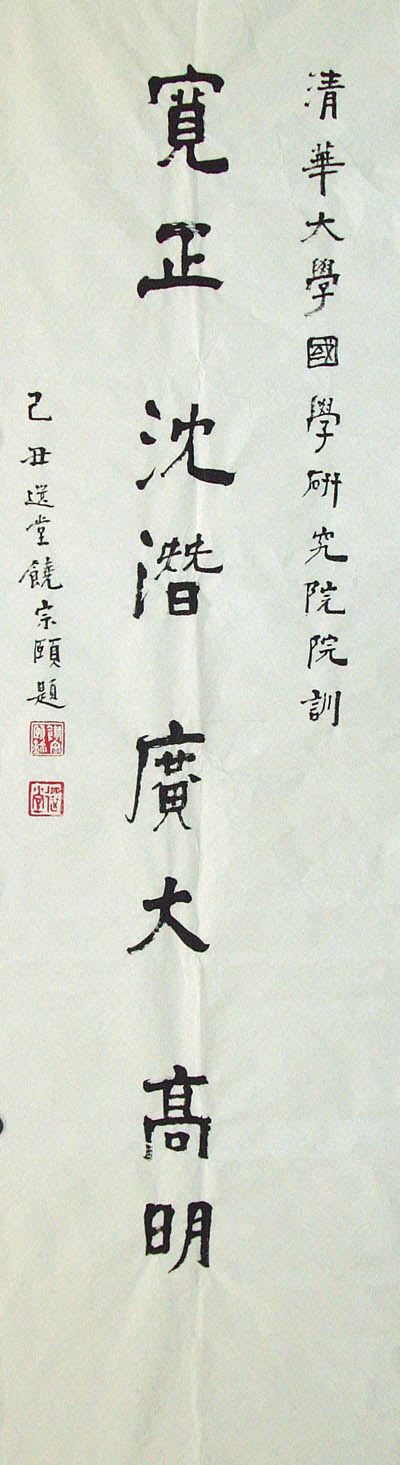 清華大學國學研究院院訓
寬正 沈潛 廣大 高明
己丑選堂饒宗頤題